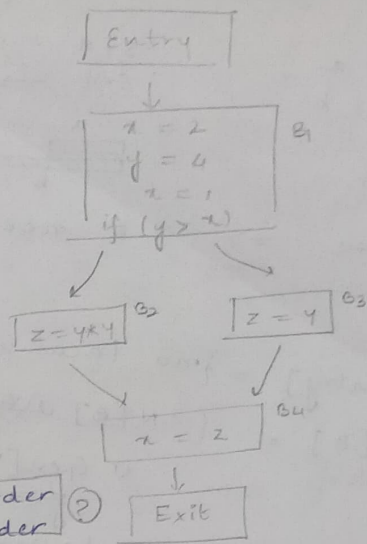 Entry
x = 2
y = 4
x = 1
if (y > x)
B1
z = y*y
B2
z = y
B3
x = z
B4
der
der
?
Exit